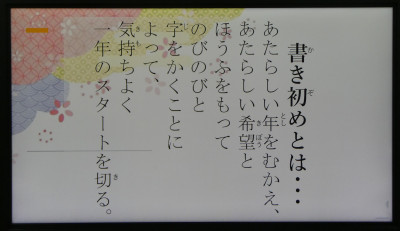 書き初めとは・・・
あたらしい年をむかえ、
あたらしい希望と
ほうふをもって
のびのびと
字をかくことに
よって、
気持ちよく
一年のスタートを切る。